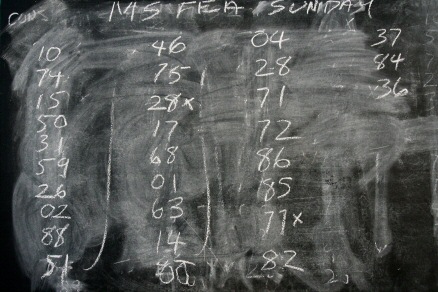 CONS MS FEA SUNDAY
10 46 04 37
74 75 28 84
15 28x 71 36
50 17 72
31 68 86
59 01 85
26 63 71x
02 14 82
88
51